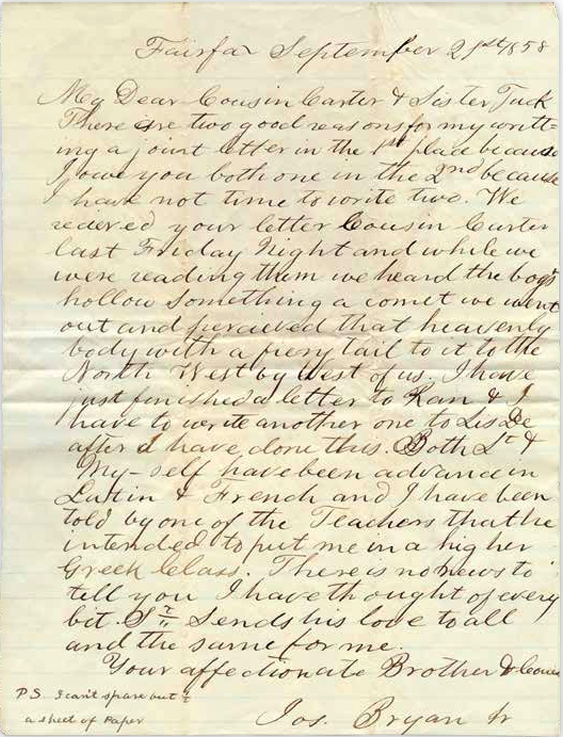 Fairfax September 21st/858
My Dear Cousin Carter & Sister Tuck
There are two good reasons for my writt=
ing a joint letter in the 1st place because
I owe you both one in the 2nd because
I have not time to write two. We
recieved your letter Cousin Carter
last Friday Night and while we
were reading them we heard the boys
hollow something a comet we went
out and percieved that heavenly
body with a fiery tail to it to the
North West by West of us. I have
just finished a letter to Ran & I
have to write another one to Sis De
after I have done this. Both St &
My-self have been advance in
Latin & French and I have been
told by one of the Teachers that he
intended to put me in a higher
Greek Class. There is no news to
tell you I have thought of every
bit. St Sends his love to all
and the same for me.
Your affectionate Brother & Cousin
Jos. Bryan Jr
P.S. I can't spare but ½
a sheet of Paper